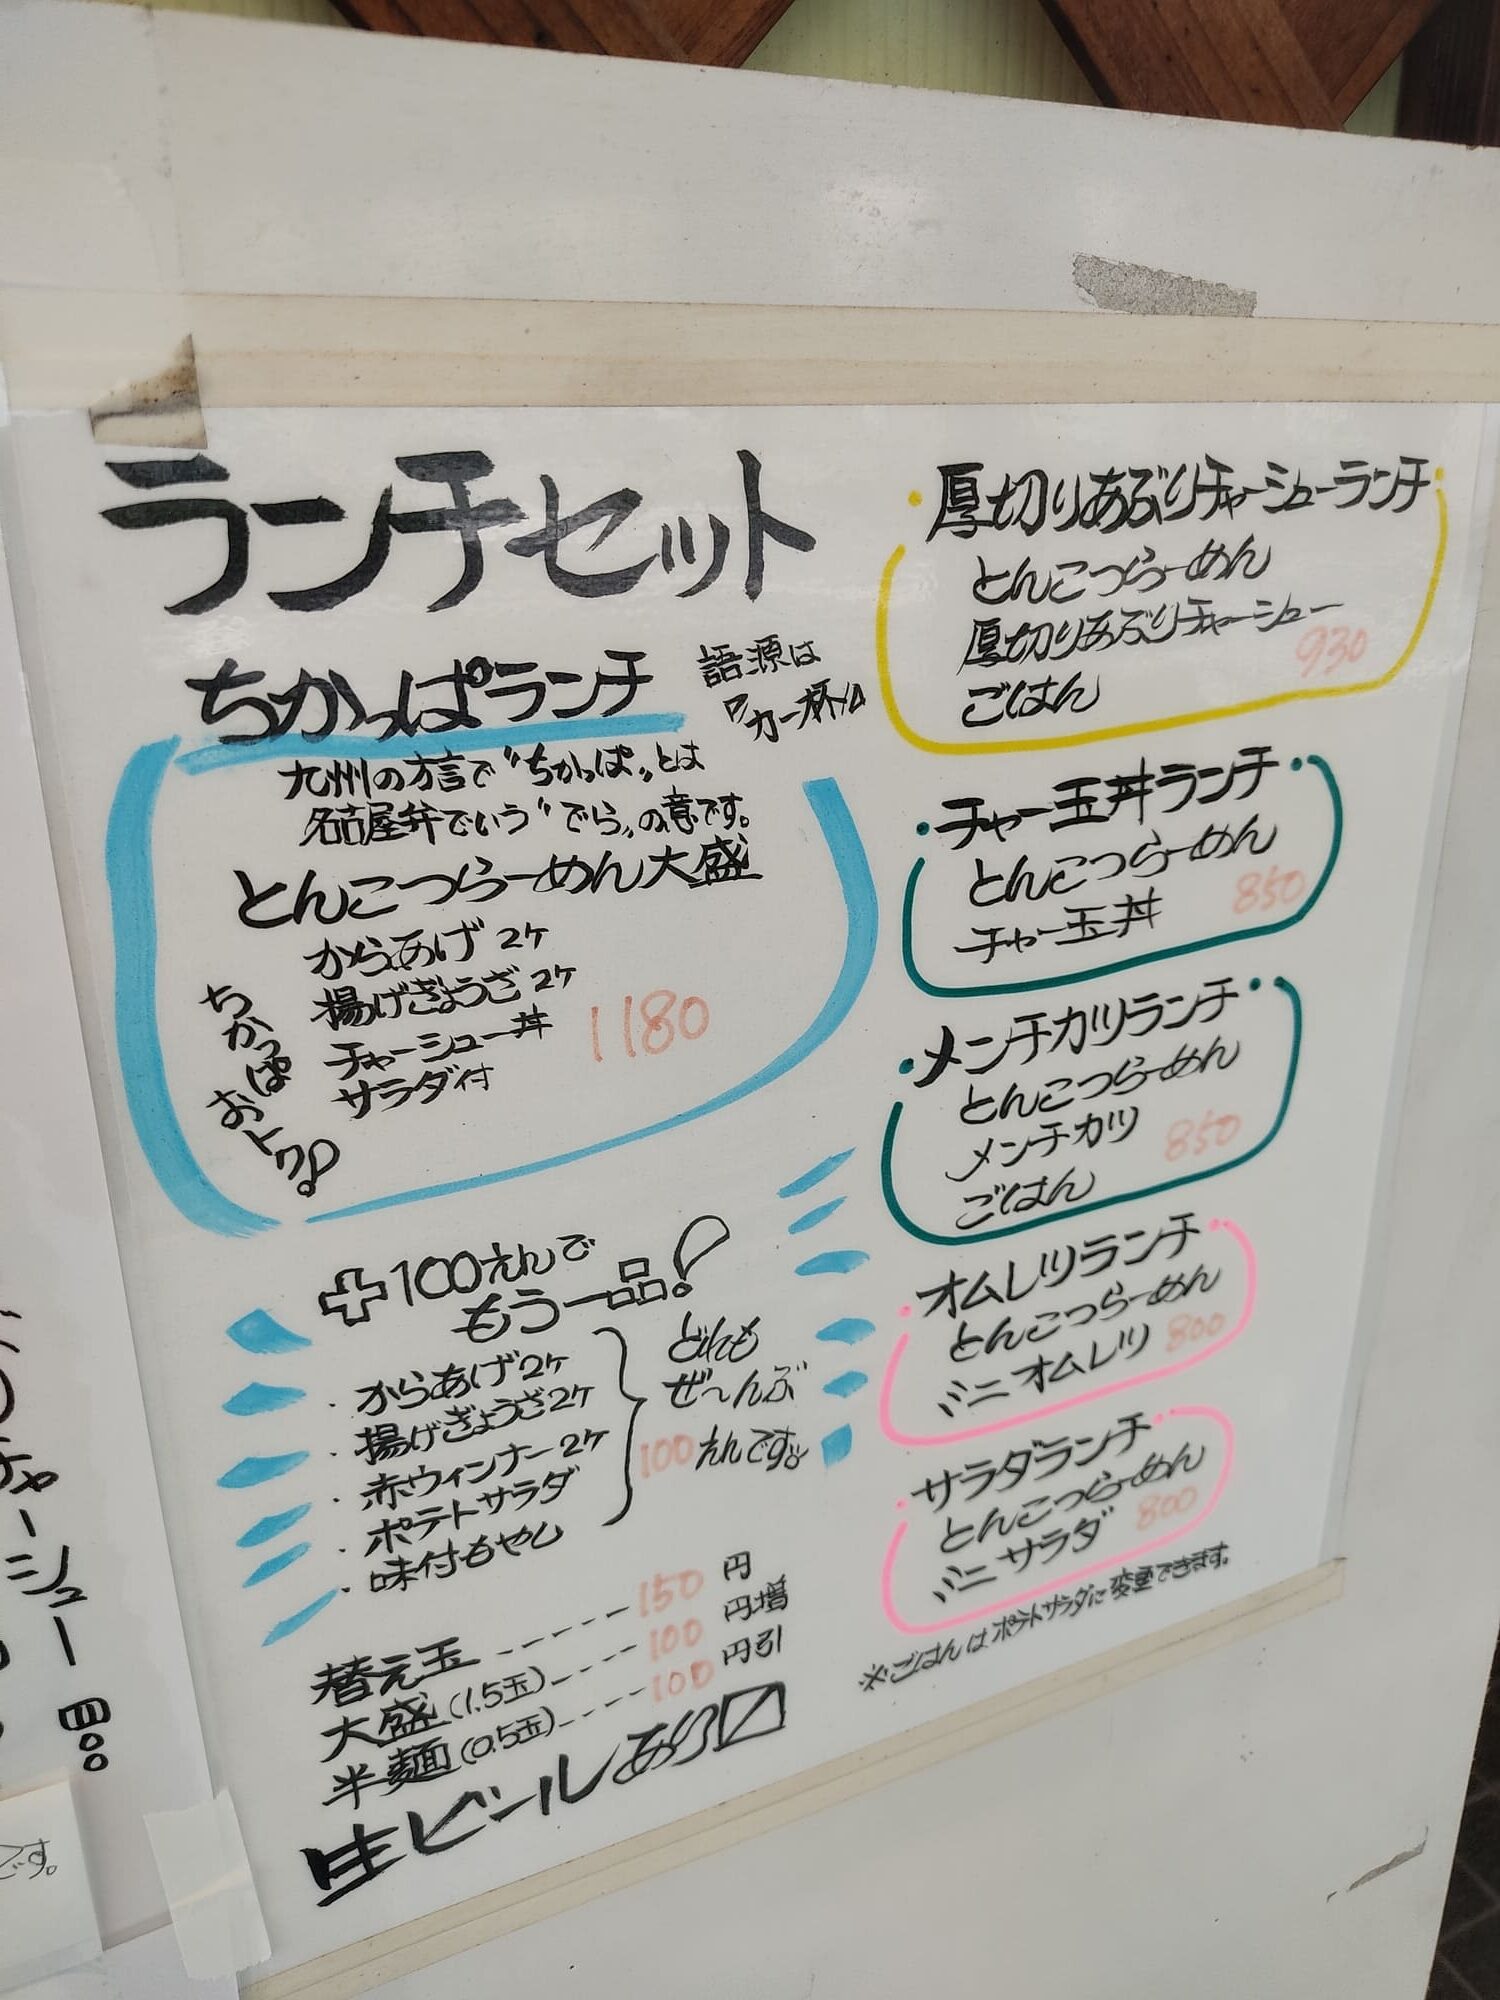 ランチセット
ちかっぱランチ
語源は
『力一杯』
九州の方言で“ちかっぱ„とは
名古屋弁でいう“でら„の意です。
とんこつらーめん大盛
からあげ2ケ
揚げぎょうざ2ケ
チャーシュー丼
サラダ付
1180
ちかっぱ
おトク!
+100えんで
もう一品!
・からあげ2ケ
・揚げぎょうざ2ケ
・赤ウィンナー2ケ
・ポテトサラダ
・味付もやし
どれも
ぜ〜んぶ
100えんです。
替え玉-----150円
大盛(1.5玉)----100円増
半麺(0.5玉)----100円引
生ビールあり〼
厚切りあぶりチャーシューランチ
とんこつらーめん
厚切りあぶりチャーシュー
930
ごはん
チャー玉丼ランチ
とんこつらーめん
チャー玉丼
850
メンチカツランチ
とんこつらーめん
メンチカツ
850
ごはん
オムレツランチ
とんこつらーめん
ミニオムレツ 800
サラダランチ
とんこつらーめん
ミニサラダ 800
※ごはんはポテトサラダに変更できます。
チャーシュー
です。